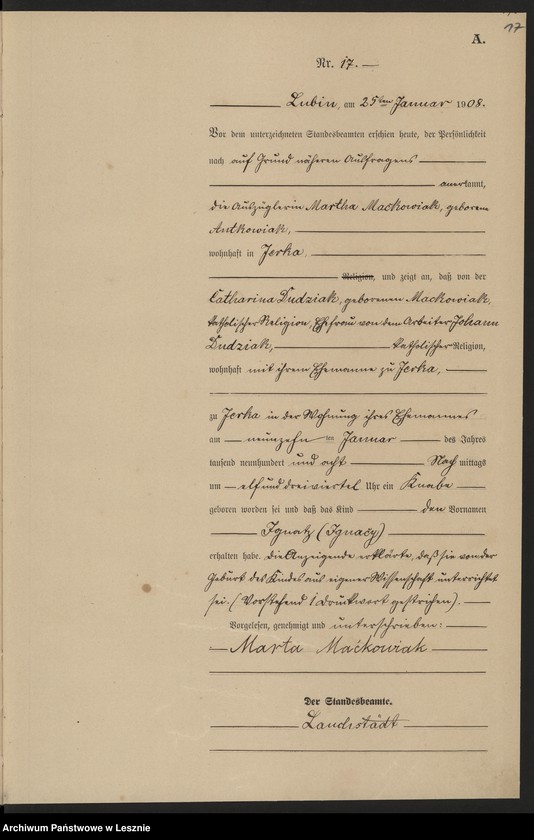 17
A.
Nr. 17.
Lubin, am 25ten Januar 1908.
Vor dem unterzeichneten Standesbeamten erschien heute, der Persönlichkeit
nach auf Grund näheren Ausfragens
anerkannt,
die Auszüglerin Martha Maćkowiak, geborene
Antkowiak,
wohnhaft in Jerka
Religion, und zeigt an, daß von der
Catharina Dudziak, geborenen Mackowiak,
katholischer Religion, Ehefrau von dem Arbeiter Johann
Dudziak, katholischer Religion,
wohnhaft mit ihrem Ehemanne zu Jerka,
zu Jerka in der Wohnung ihres Ehemannes
am neunzehnten Januar des Jahres
tausend neunhundert und acht Nachmittags
um elfunddreiviertel Uhr ein Knabe
geboren worden sei und daß das Kind den Vornamen
Ignatz (Ignacy)
erhalten habe. Die Anzeigende erklärte, daß sie von der
Geburt des Kindes aus eigener Wissenschaft unterrichtet
sei. (Vorstehend 1 Druckwort gestrichen).
Vorgelesen, genehmigt und unterschrieben:
Marta Maćkowiak
Der Standesbeamte.
Landstädt
Archiwum Państwowe w Lesznie